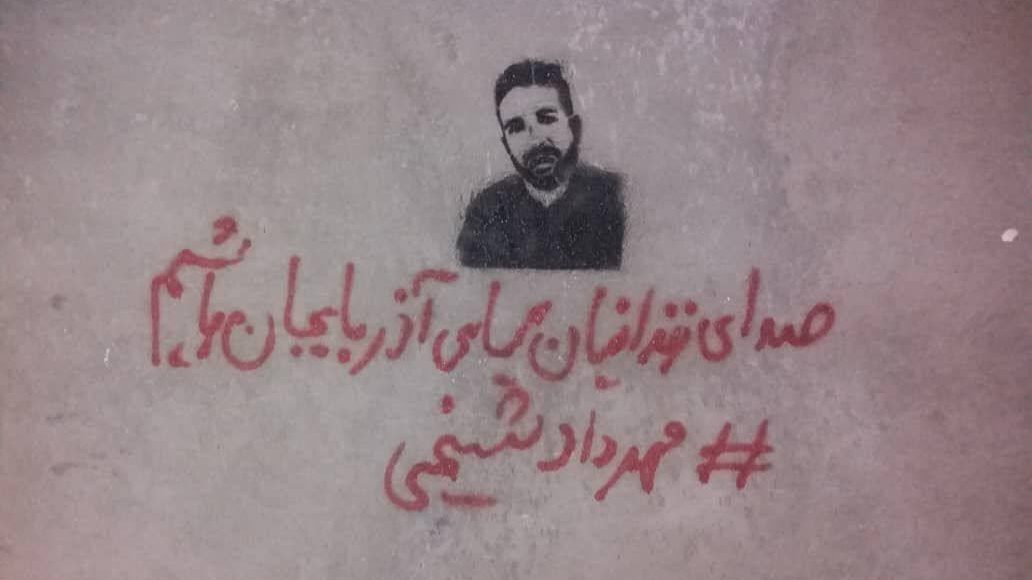 صدای زندانیان سیاسی آذربایجان باشیم
#مهرداد شیخی